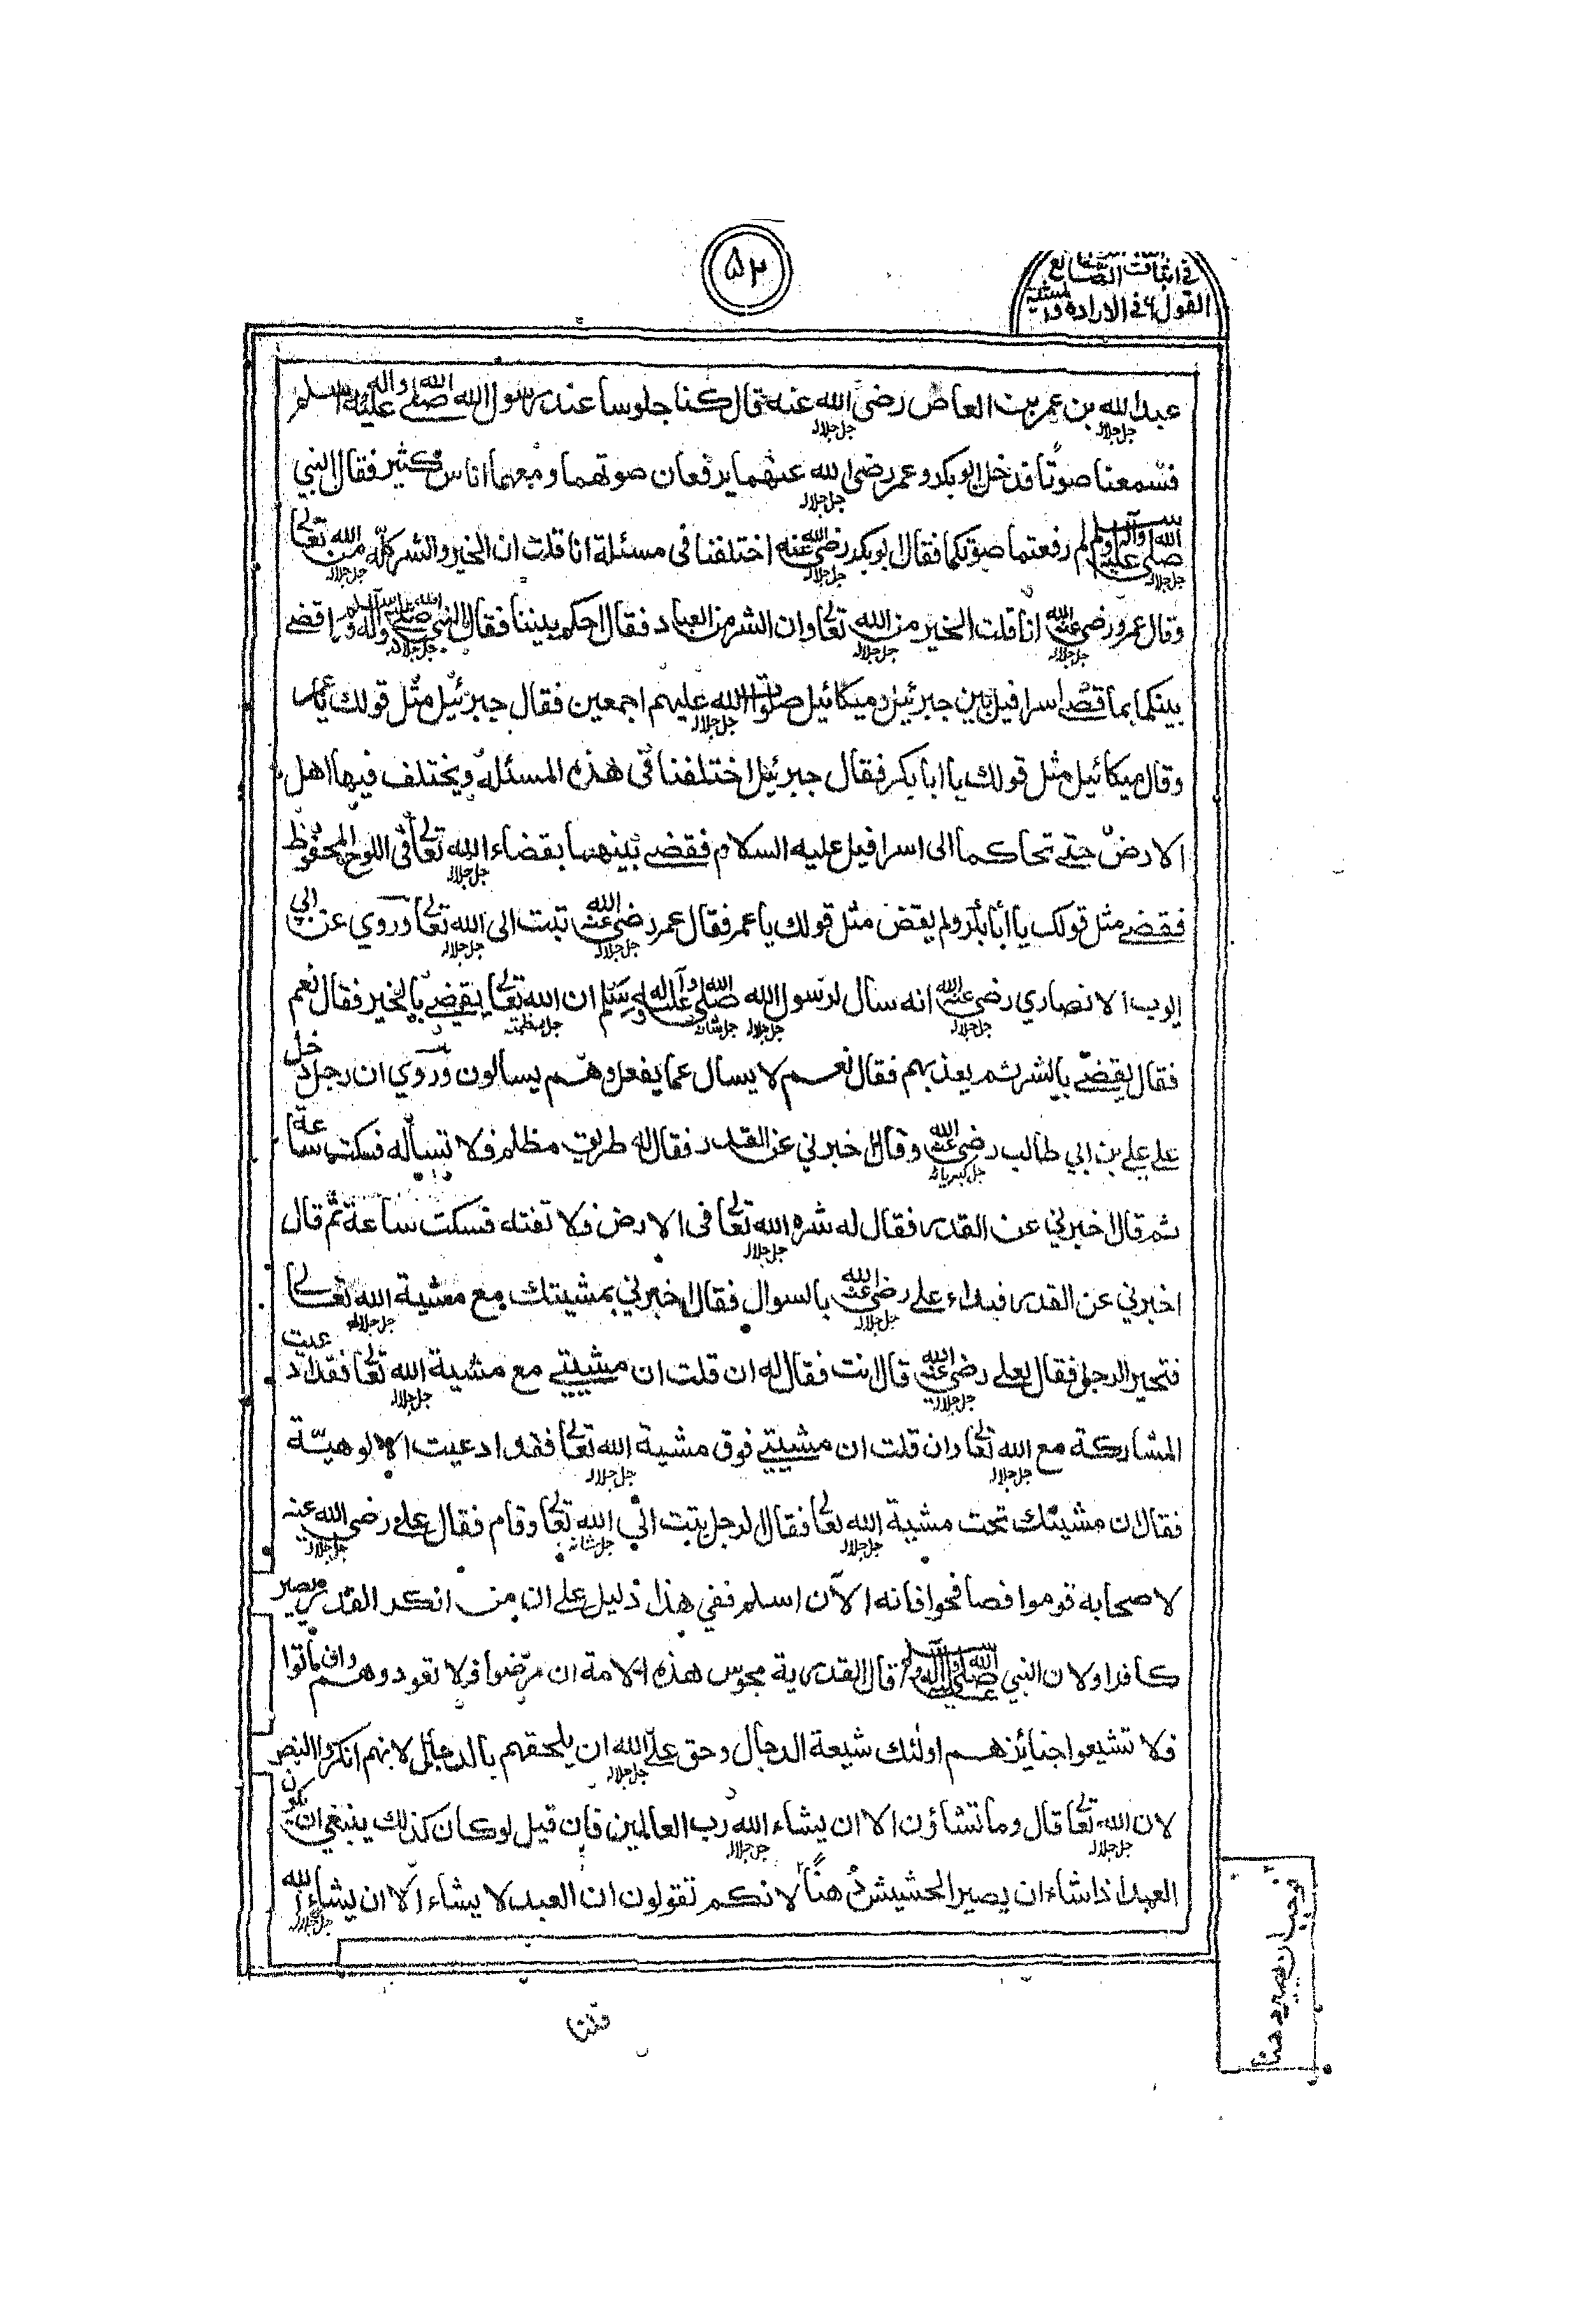 ۵۲
في اثبات الصانع
القول في الارادة و المشيئة
عبد الله بن عمر بن العاص رضي الله عنه قال كنا جلوسا عند رسول الله صلى الله عليه واله وسلم
فسمعنا صوتا فدخل ابو بكر و عمر رضى الله عنهما يرفعان صوتهما و معهما اناس كثير فقال النبي
صلى الله عليه وآله وسلم لم رفعتما صوتكما فقال ابو بكر رضى الله عنه اختلفنا فى مسئلة انا قلت ان الخير والشر كله من الله تعالى
وقال عمر رضى الله عنه انا قلت الخير من الله تعالى وان الشر من العباد فقال احكم بيننا فقال النبي صلى الله عليه وآله وسلم اقضے
بينكما بما قضے اسرافيل بين جبرئيل و ميكائيل صلوات الله عليهم اجمعين فقال جبرئيل مثل قولك يا عمر
وقال ميكائيل مثل قولك يا ابا بكر فقال جبرئيل اختلفنا في هذه المسئلة ويختلف فيها اهل
الارض حتے تحاكما الى اسرافيل عليه السلام فقضے بينهما بقضاء الله تعالى في اللوح المحفوظ
فقضے مثل قولك يا أبا بكر ولم يقض مثل قولك يا عمر فقال عمر رضى الله عنه تبت الى الله تعالى وروي عن ابي
ايوب الانصاري رضى الله عنه انه سال لرسول الله صلى الله عليه وآله وسلم ان الله تعالى يقضے بالخير فقال نعم
فقال يقضے بالشر ثم يعذبهم فقال نعم لا يسال عما يفعل وهم يسالون وروي ان رجل دخل
علے علے بن ابي طالب رضى الله عنه وقال اخبرني عن القدر فقال له طريق مظلم فلا تسأله فسكت ساعة
ثم قال اخبرني عن القدر فقال له شره الله تعالى فى الارض فلا تفته فسكت ساعة ثم قال
اخبرني عن القدر فبداء على رضى الله عنه بالسوال فقال اخبرني بمشيتك مع مشية الله تعالى
فتحير الرجل فقال لعلے رضى الله عنه قال انت فقال له ان قلت ان مشيتے مع مشية الله تعالى فقد ادعيت
المشاركة مع الله تعالى وان قلت ان مشيتے فوق مشية الله تعالى فقد ادعيت الالوهية
فقال ان مشيتك تحت مشية الله تعالى فقال الرجل تبت الى الله تعالى وقام فقال علے رضى الله عنه
لاصحابه قوموا فصافحوا فانه الآن اسلم ففي هذا دليل علے ان من انكر القدر يصير
كافرا ولان النبي صلى الله عليه وآله وسلم قال القدرية مجوس هذه الامة ان مرضوا فلا تعودوهم وان ماتوا
فلا تشيعوا جنائزهم اولئك شيعة الدجال وحق علے الله ان يلحقهم بالدجال لانهم انكروا النص
لان الله تعالى قال وما تشاؤن الا ان يشاء الله رب العالمين فان قيل لو كان كذلك ينبغي ان يكون
العبد اذا شاء ان يصير الحشيش دهنًا لانكم تقولون ان العبد لا يشاء الّا ان يشاء الله
فوجب ان يصير دهنا
قلنا